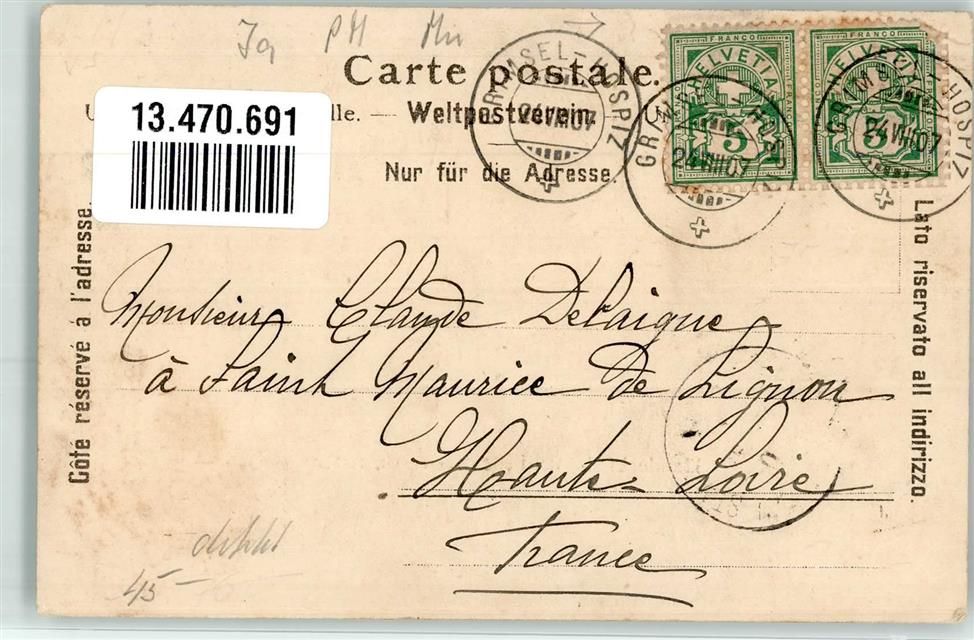 Carte postale.
13.470.691
lle. — Weltpostverein.
Nur für die Adresse.
Côté réservé à l'adresse.
Lato riservato all indirizzo.
GRIMSEL-HOSPIZ
24 VIII 07
FRANCO FRANCO
HELVETIA HELVETIA
5 5
GRIMSEL-HOSPIZ
24 VIII 07
GRIMSEL-HOSPIZ
24 VIII 07
Monsieur Claude Delaigue
à Saint Maurice de Lignon
Haute-Loire
France
45-